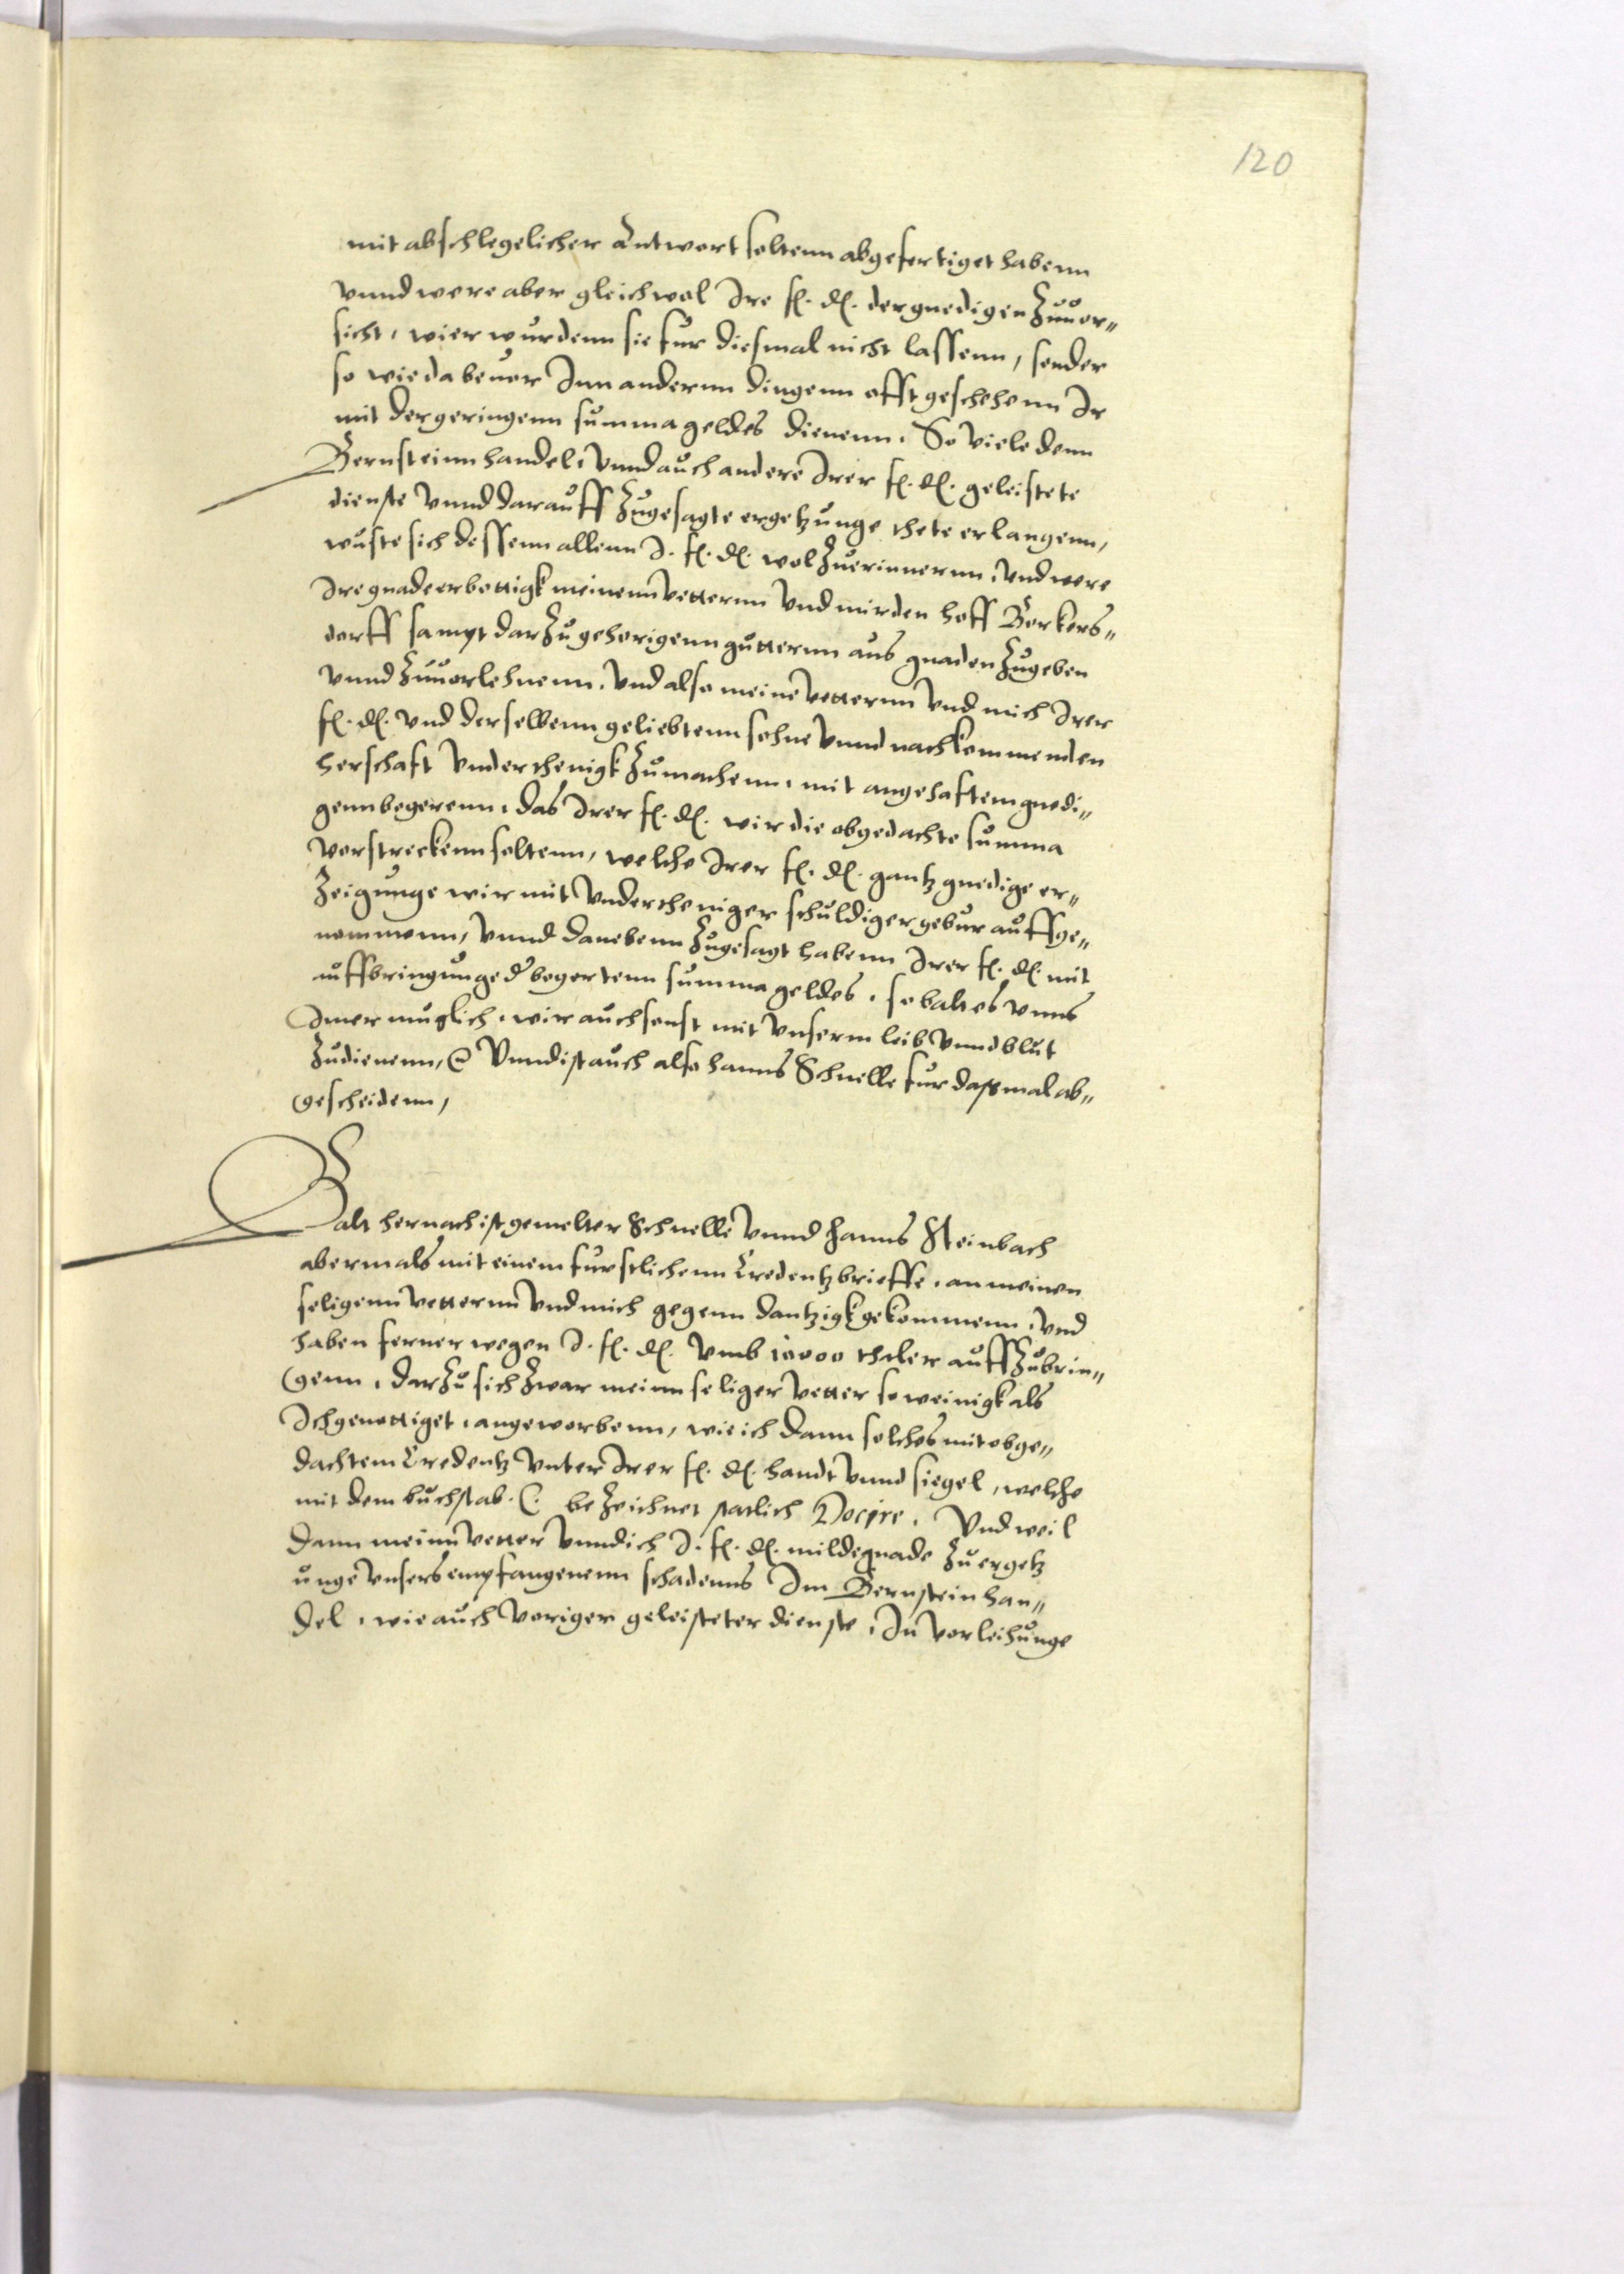 120
mit abschlegelicher Antwort soltenn abgefertiget habenn
vnnd were aber gleichwol Ire f. d. der gnedigen Zuuer„
sicht, wier wurdenn sie fur diesmal nicht lassenn, sonder
so wie da beuor Inn anderenn dingenn offt geschehenn Ir
mit der geringenn summa geldes dienenn. So viele denn
Bernsteinn handel, vnnd auch andere Irer f. d. geleistete
dienste vnnd darauff Zugesagte ergetzunge thete erlangenn,
wuste sich dessenn allenn I. f. d. wol Zuerinnernn, vnd were
Ire gnade erbottigk meinenn vetternn vnd mir den hoff Borkers„
dorff sampt dar Zu gehorigenn guetternn aus gnaden Zugeben
vnnd Zuuorlehnenn, vnd also meine vetternn vnd mich Irer
f. d. vnd derselbenn geliebtenn sohne vnnd nachkommenden
herschaft vnderthenigk Zumachenn, mit angehaftem gnedi„
genn begerenn, das Irer f. d. wir die obgedachte summa
vorstreckenn soltenn, welche Irer f. d. gantz gnedige er„
Zeigunge wir mit vndertheniger schuldiger gebur auffge„
nommenn, vnnd danebenn Zugesagt habenn Irer f. d. mit
auffbringunge d begertenn summa geldes, so balt es vnns
Imer muglich, wir auch sonst mit vnserm leib vnnd blut
Zudienenn, @ Vnnd ist auch also hanns Schnelle fur dassmal ab„
gescheidenn,
Balt hernach ist gemelter Schnelle vnnd Hanns Steinbach
abermals mit einem furstlichenn Credentz brieffe, an meinen
seligenn vetternn vnd mich gegenn dantzigk gekommenn, vnd
haben ferner wegen I. f. d. vmb 10000 thaler auff Zubrin„
genn, dar Zu sich Zwar meinn seliger vetter so weinigk als
Ich genottiget, angeworbenn, wie ich dann solches mit obge„
dachtem Credentz vnter Irer f. d. handt vnnd siegel, welche
mit dem buchstab. C. be Zeichnet statlich Docire. Vnd weil
dann meinn vetter vnnd ich I. f. d. milde gnade Zu ergetz
unge vnsers empfangenenn schadenns Im Bernstein han„
del, wie auch voriger geleisteter dienste, In vorleihunge